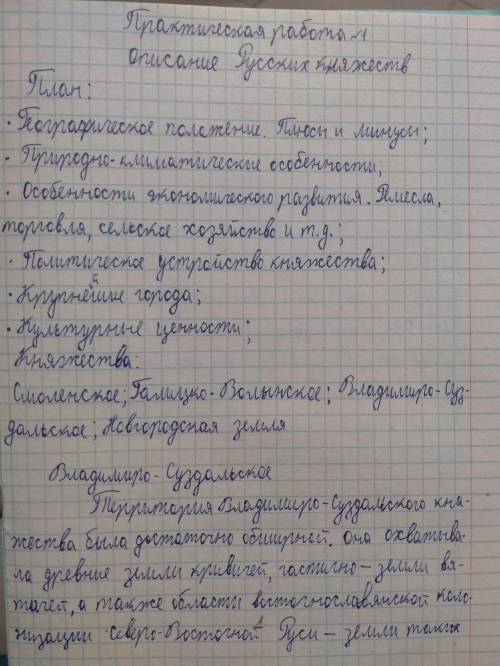 Практическая работа №1
Описание Русских княжеств
План:
· Географическое положение. Плюсы и минусы;
· Природно-климатические особенности;
· Особенности экономического развития. Ремесла,
торговля, сельское хозяйство и т.д.;
· Политическое устройство княжества;
· Крупнейшие города;
· Культурные ценности;
Княжества:
Смоленское; Галицко-Волынское; Владимиро-Суз-
дальское; Новгородская земля
Владимиро-Суздальское
Территория Владимиро-Суздальского кня-
жества была достаточно обширной. Она охватыва-
ла древние земли кривичей, частично – земли вя-
тичей, а также области восточнославянской коло-
низации Северо-Восточной Руси – земли таких